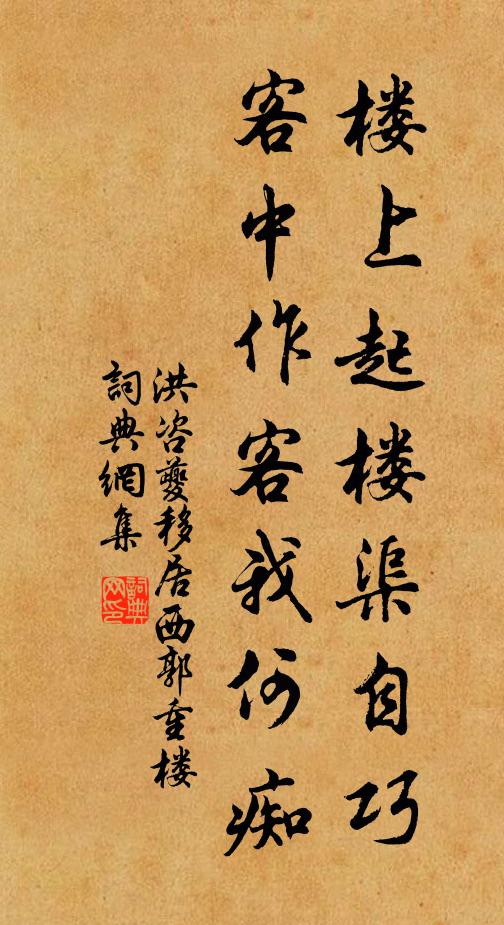 楼上起楼渠自巧
客中作客我何痴
洪咨夔移居西郭重楼
詞典網集
詞典网印